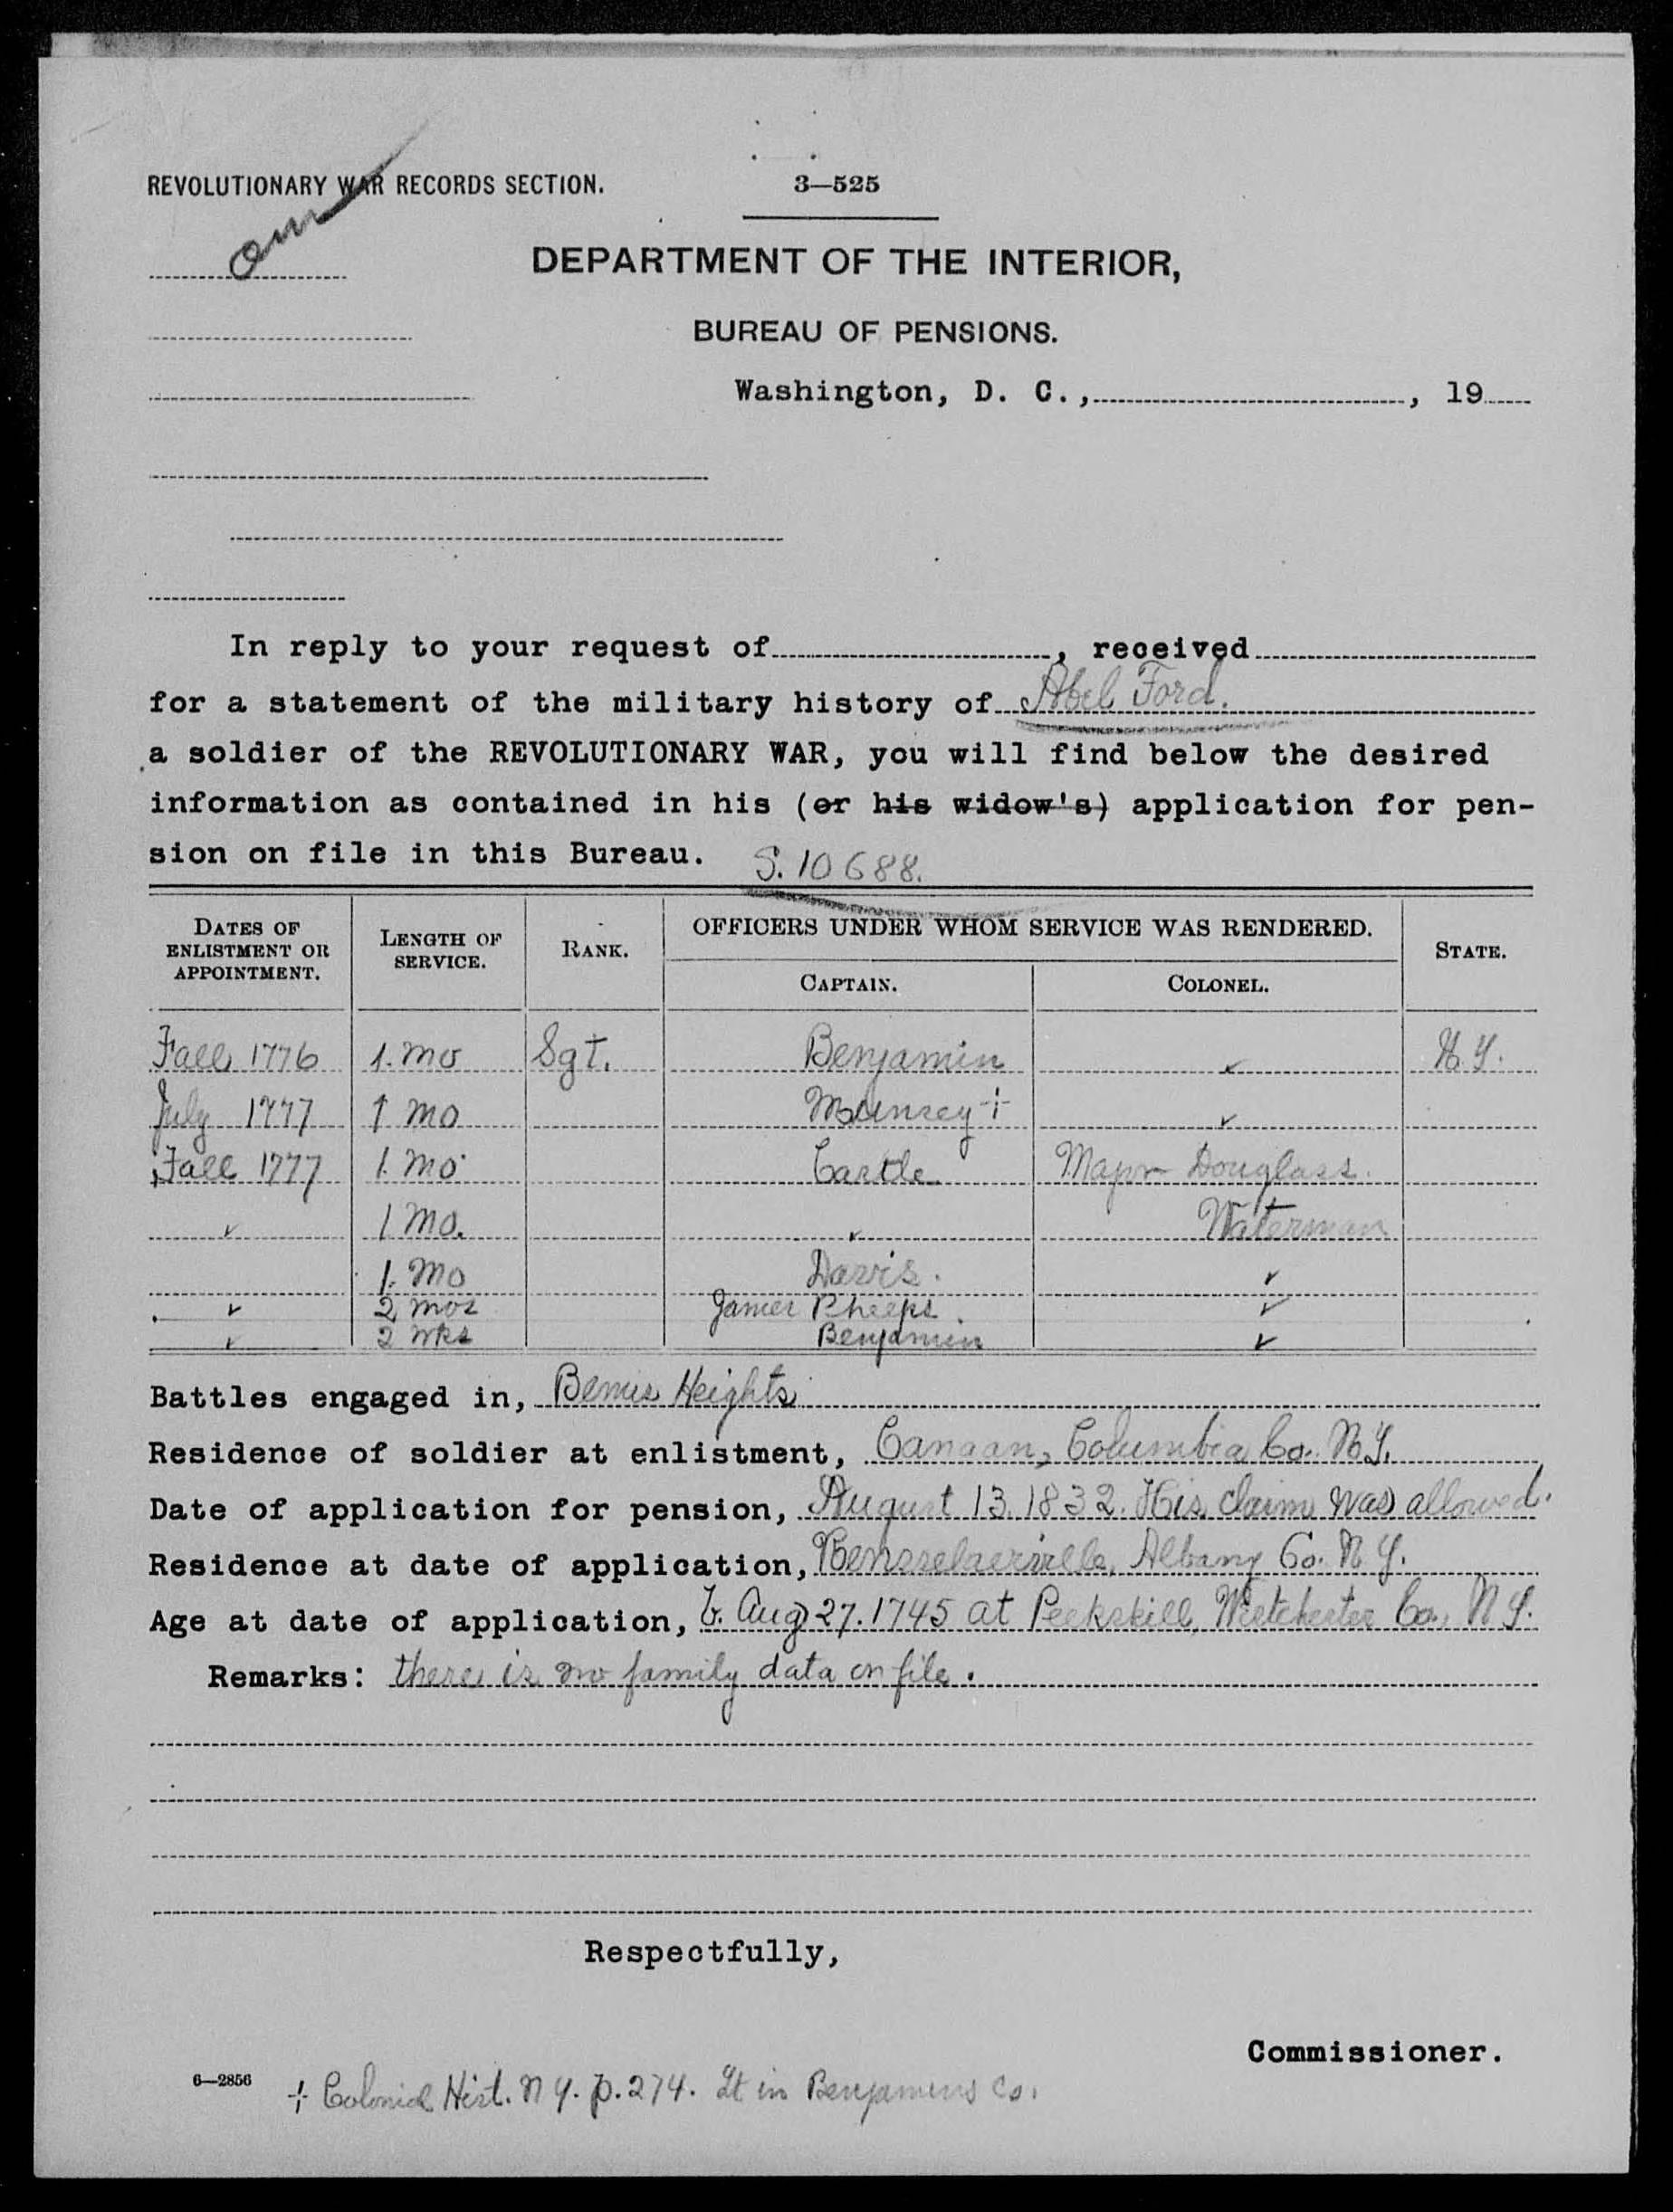 REVOLUTIONARY WAR RECORDS SECTION. 3—525
DEPARTMENT OF THE INTERIOR,
BUREAU OF PENSIONS.
Washington, D. C., , 19
In reply to your request of , received
for a statement of the military history of Abel Ford.
a soldier of the REVOLUTIONARY WAR, you will find below the desired
information as contained in his (or his widow's) application for pen-
sion on file in this Bureau. S. 10688.
DATES OF ENLISTMENT OR APPOINTMENT. LENGTH OF SERVICE. RANK. OFFICERS UNDER WHOM SERVICE WAS RENDERED. STATE.
CAPTAIN. COLONEL.
Fall 1776 1. mo Sgt. Benjamin ✓ N.Y.
July 1777 1 mo Mounsey + ✓
Fall 1777 1. mo Castle Major Douglass.
✓ 1 mo. ✓ Waterman
1. mo Davis. ✓
✓ 2 mos James Pheeps. ✓
✓ 2 wks Benjamin ✓
Battles engaged in, Bemis Heights
Residence of soldier at enlistment, Canaan, Columbia Co. N.Y.
Date of application for pension, August 13. 1832. His claim was allowed.
Residence at date of application, Rensselaerville, Albany Co. N.Y.
Age at date of application, b. Aug 27. 1745 at Peekskill, Westchester Co., N.Y.
Remarks: there is no family data on file.
Respectfully,
Commissioner.
6—2856 + Colonial Hist. N Y. p. 274. Lt in Benjamins Co.